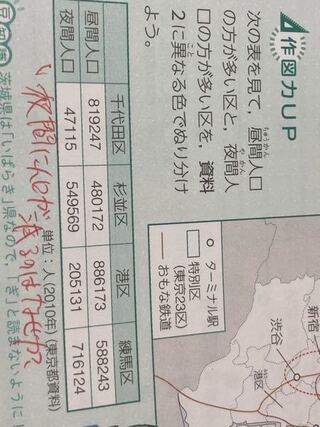 作図力UP
次の表を見て,昼間人口
の方が多い区と,夜間人
口の方が多い区を,資料
2に異なる色でぬり分け
よう。
千代田区 杉並区 港区 練馬区
昼間人口 819247 480172 886173 588243
夜間人口 47115 549569 205131 716124
単位:人(2010年)(東京都資料)
夜間に人口が減るのはなぜか?
茨城県は「いばらき」県なので,"ぎ"と読まないように!
ターミナル駅
特別区
(東京23区)
おもな鉄道
新宿
渋谷
港区